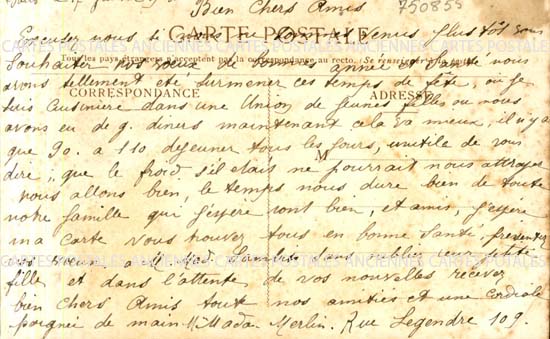 Bien Chers Amis 750855
Excusez nous si nous ne sommes venus plus tôt vous
CARTE POSTALE
souhaiter vos bonne année et santé nous
Tous les pays étrangers n'acceptent pas la correspondance au recto. (Se renseigner à la poste)
avons tellement ete surmener ces temps de fête, où je
CORRESPONDANCE ADRESSE
suis cuisiniere dans une Union de jeunes filles ou nous
avons eu de g. diners maintenant cela va mieux, il n'y a
que 90. a 110 dejeuner tous les jours, inutile de vous
M
dire, que le froid, s'il etais ne pourrait nous attraper
nous allons bien, le temps nous dure bien de toute
votre famille qui j'espère vont bien, et amis, j'espère
ma carte vous trouvez tous en bonne santé, presentez
nos à Mad. sans oublier sa petite
fille et dans l'attente de vos nouvelles recevez
bien chers Amis toute nos amities et une cordiale
poignee de main M. Mada. Merlin. Rue Legendre 109.
CARTES POSTALES ANCIENNES CARTES POSTALES ANCIENNES